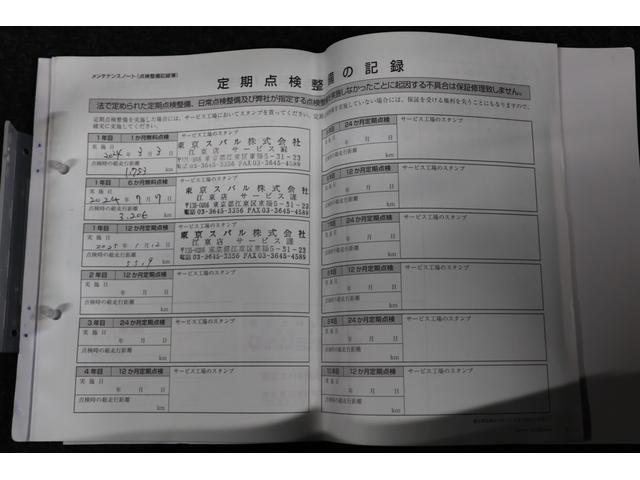 メンテナンスノート(点検整備記録簿)
定期点検整備の記録
法で定められた定期点検整備、日常点検整備及び弊社が指定する点検整備を実施しなかったことに起因する不具合は保証修理致しません。
定期点検整備を実施した場合には、サービス工場においてスタンプを貰ってください。
確実に実施してください。
実施していない場合には、保証を受ける権利を失うこともありますので、
1年目 1か月無料点検 サービス工場のスタンプ
実施日
2024年3月3日
点検時の総走行距離
1,753 km
東京スバル株式会社
江東店 サービス課
〒135-0056 東京都江東区東陽5-31-23
電話03-3645-3356 FAX03-3645-4589
1年目 6か月無料点検 サービス工場のスタンプ
実施日
2024年7月7日
点検時の総走行距離
3,206 km
東京スバル株式会社
江東店 サービス課
東京都江東区東陽5-31-23
電話03-3645-3356 FAX03-3645-4589
1年目 12か月定期点検 サービス工場のスタンプ
実施日
2025年1月12日
点検時の総走行距離
km
東京スバル株式会社
江東店 サービス課
東京都江東区東陽5-31-23
電話03-3645-3356 FAX03-3645-4589
2年目 12か月定期点検 サービス工場のスタンプ
実施日
年 月 日
点検時の総走行距離
km
3年目 24か月定期点検 サービス工場のスタンプ
実施日
年 月 日
点検時の総走行距離
km
4年目 12か月定期点検 サービス工場のスタンプ
実施日
年 月 日
点検時の総走行距離
km
24か月定期点検 サービス工場のスタンプ
年 月 日
km
12か月定期点検 サービス工場のスタンプ
年 月 日
km
24か月定期点検 サービス工場のスタンプ
年 月 日
km
12か月定期点検 サービス工場のスタンプ
実施日
年 月 日
点検時の総走行距離
km
24か月定期点検 サービス工場のスタンプ
実施日
年 月 日
点検時の総走行距離
km
12か月定期点検 サービス工場のスタンプ
実施日
年 月 日
点検時の総走行距離
km